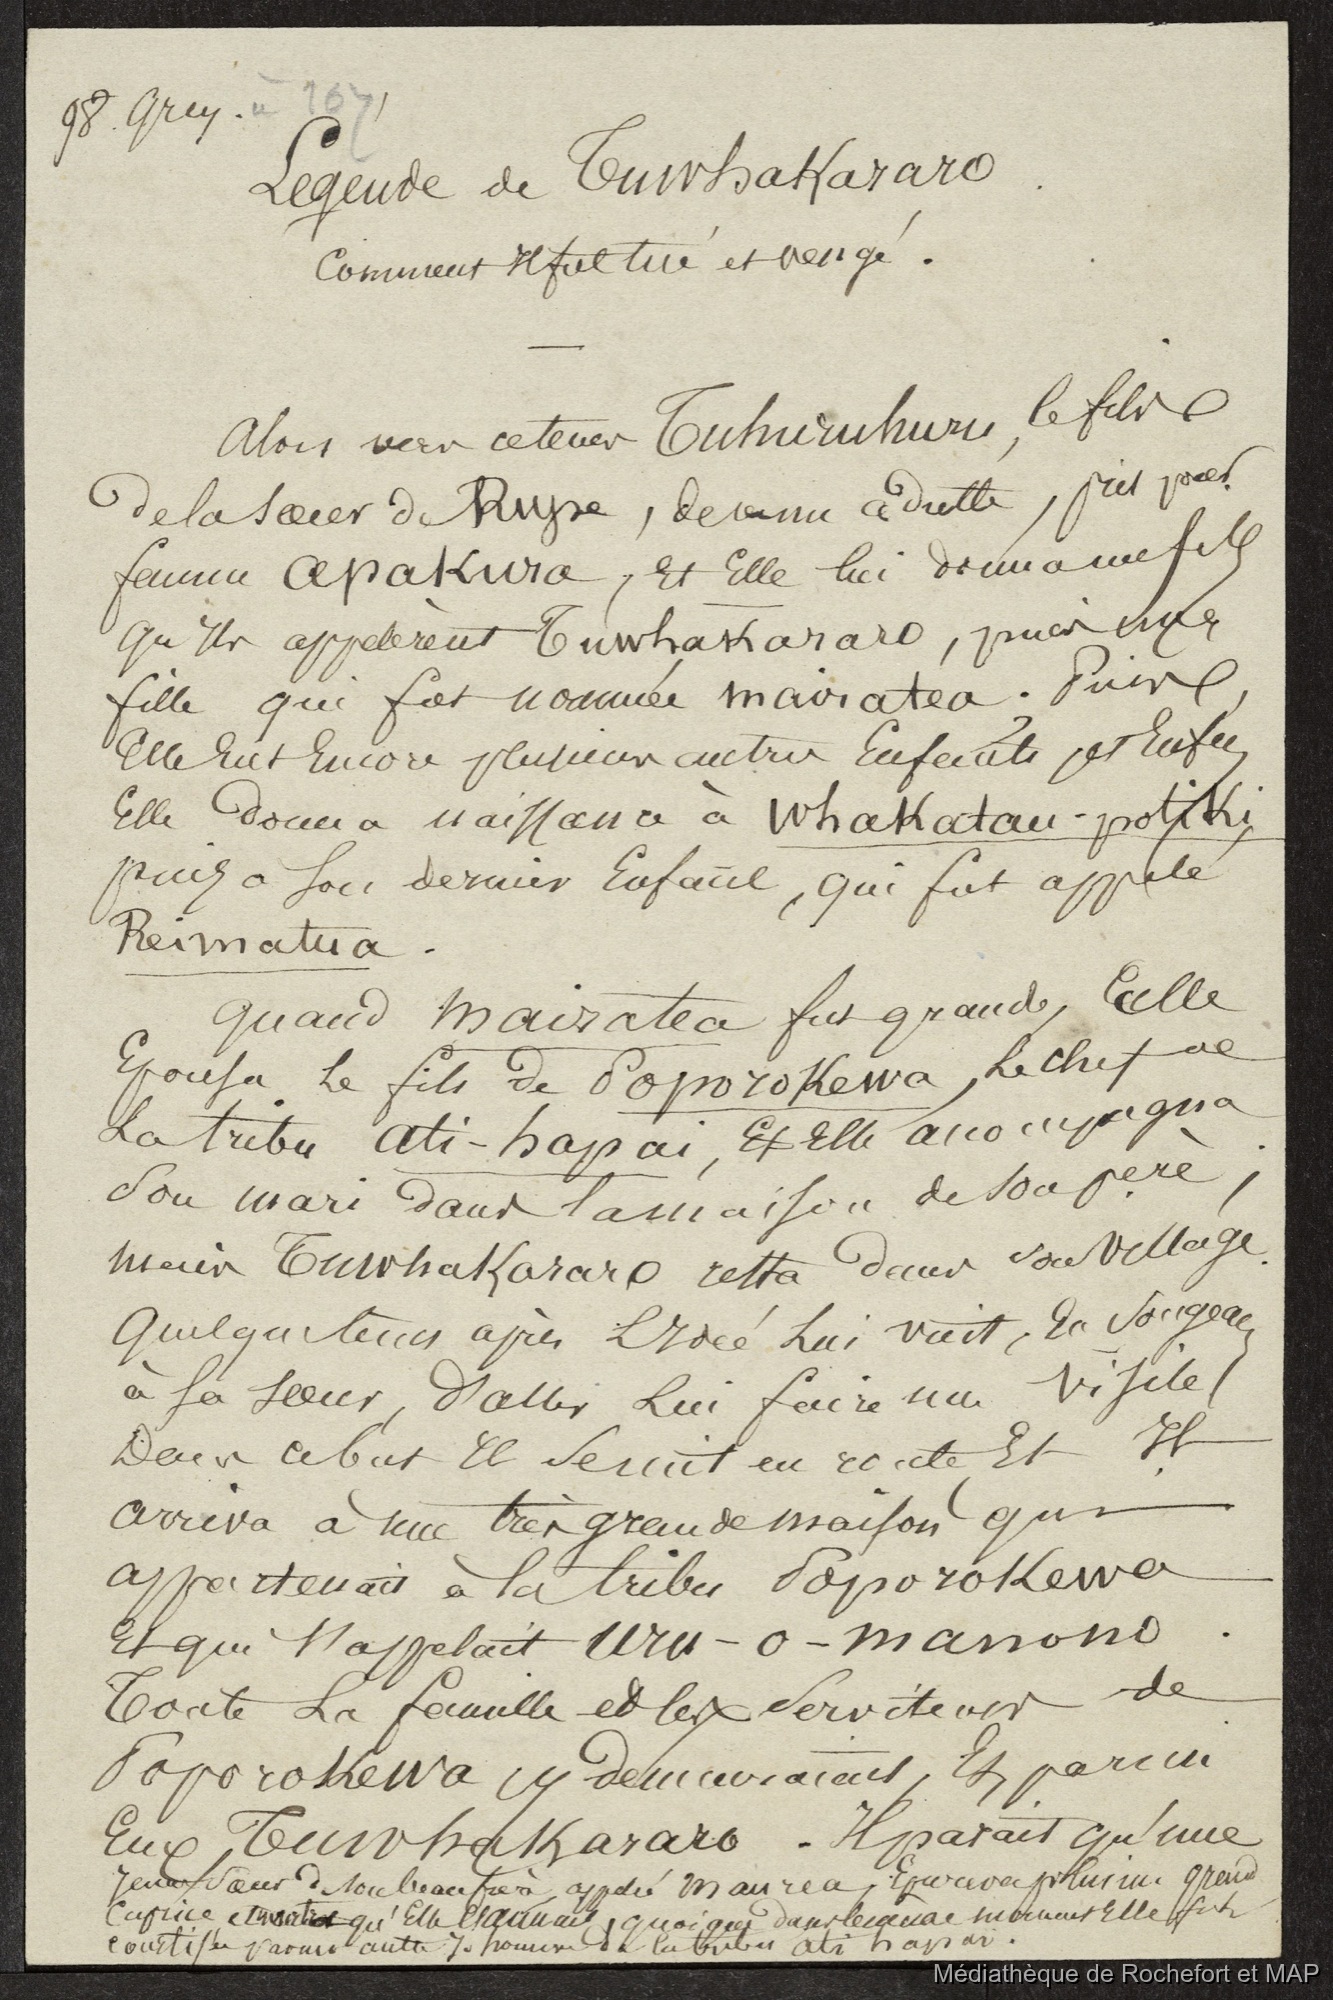 98. Grey. à 167
Légende de TuwhaKararo
Comment Il fut tué et vengé.
Alors vers ce tems Tuhuruhuru, le fils
de la sœur de Rupe, devenu adulte, prit pour
femme apaKura, et Elle lui donna un fils
qu'Ils appelèrent TuwhaKararo, puis une
fille qui fut nommée mairatea. Puis
Elle Eut Encore plusieurs autres Enfants, et Enfin
Elle donna naissance à whaKatau-potiKi,
puis à son dernier Enfant, qui fut appelé
Reimatua.
Quand Mairatea fut grande, Elle
Epousa le fils de PoporoKewa, le chef de
la tribu ati-hapai, Et Elle accompagna
son mari dans la maison de son père,
mais TuwhaKararo resta dans son village.
Quelque tems après L'Idée lui vint, En songeant
à sa sœur, d'aller lui faire une visite,
Dans ce but Il se mit en route Et Il
arriva à une très grande maison qui
appartenait à la tribu PoporoKewa
Et qui s'appelait uru-o-manono.
Toute la famille et les serviteurs de
PoporoKewa y demeuraient, Et parmi
Eux TuwhaKararo. Il parait qu'une
jeune sœur de son beau frère, appelé Maurea, Eprouva pour lui un grand
Caprice et qu'Elle l'aimait, quoique dans le même moment Elle fut
courtisée par un autre jne homme de la tribu ati hapai.
Médiathèque de Rochefort et MAP